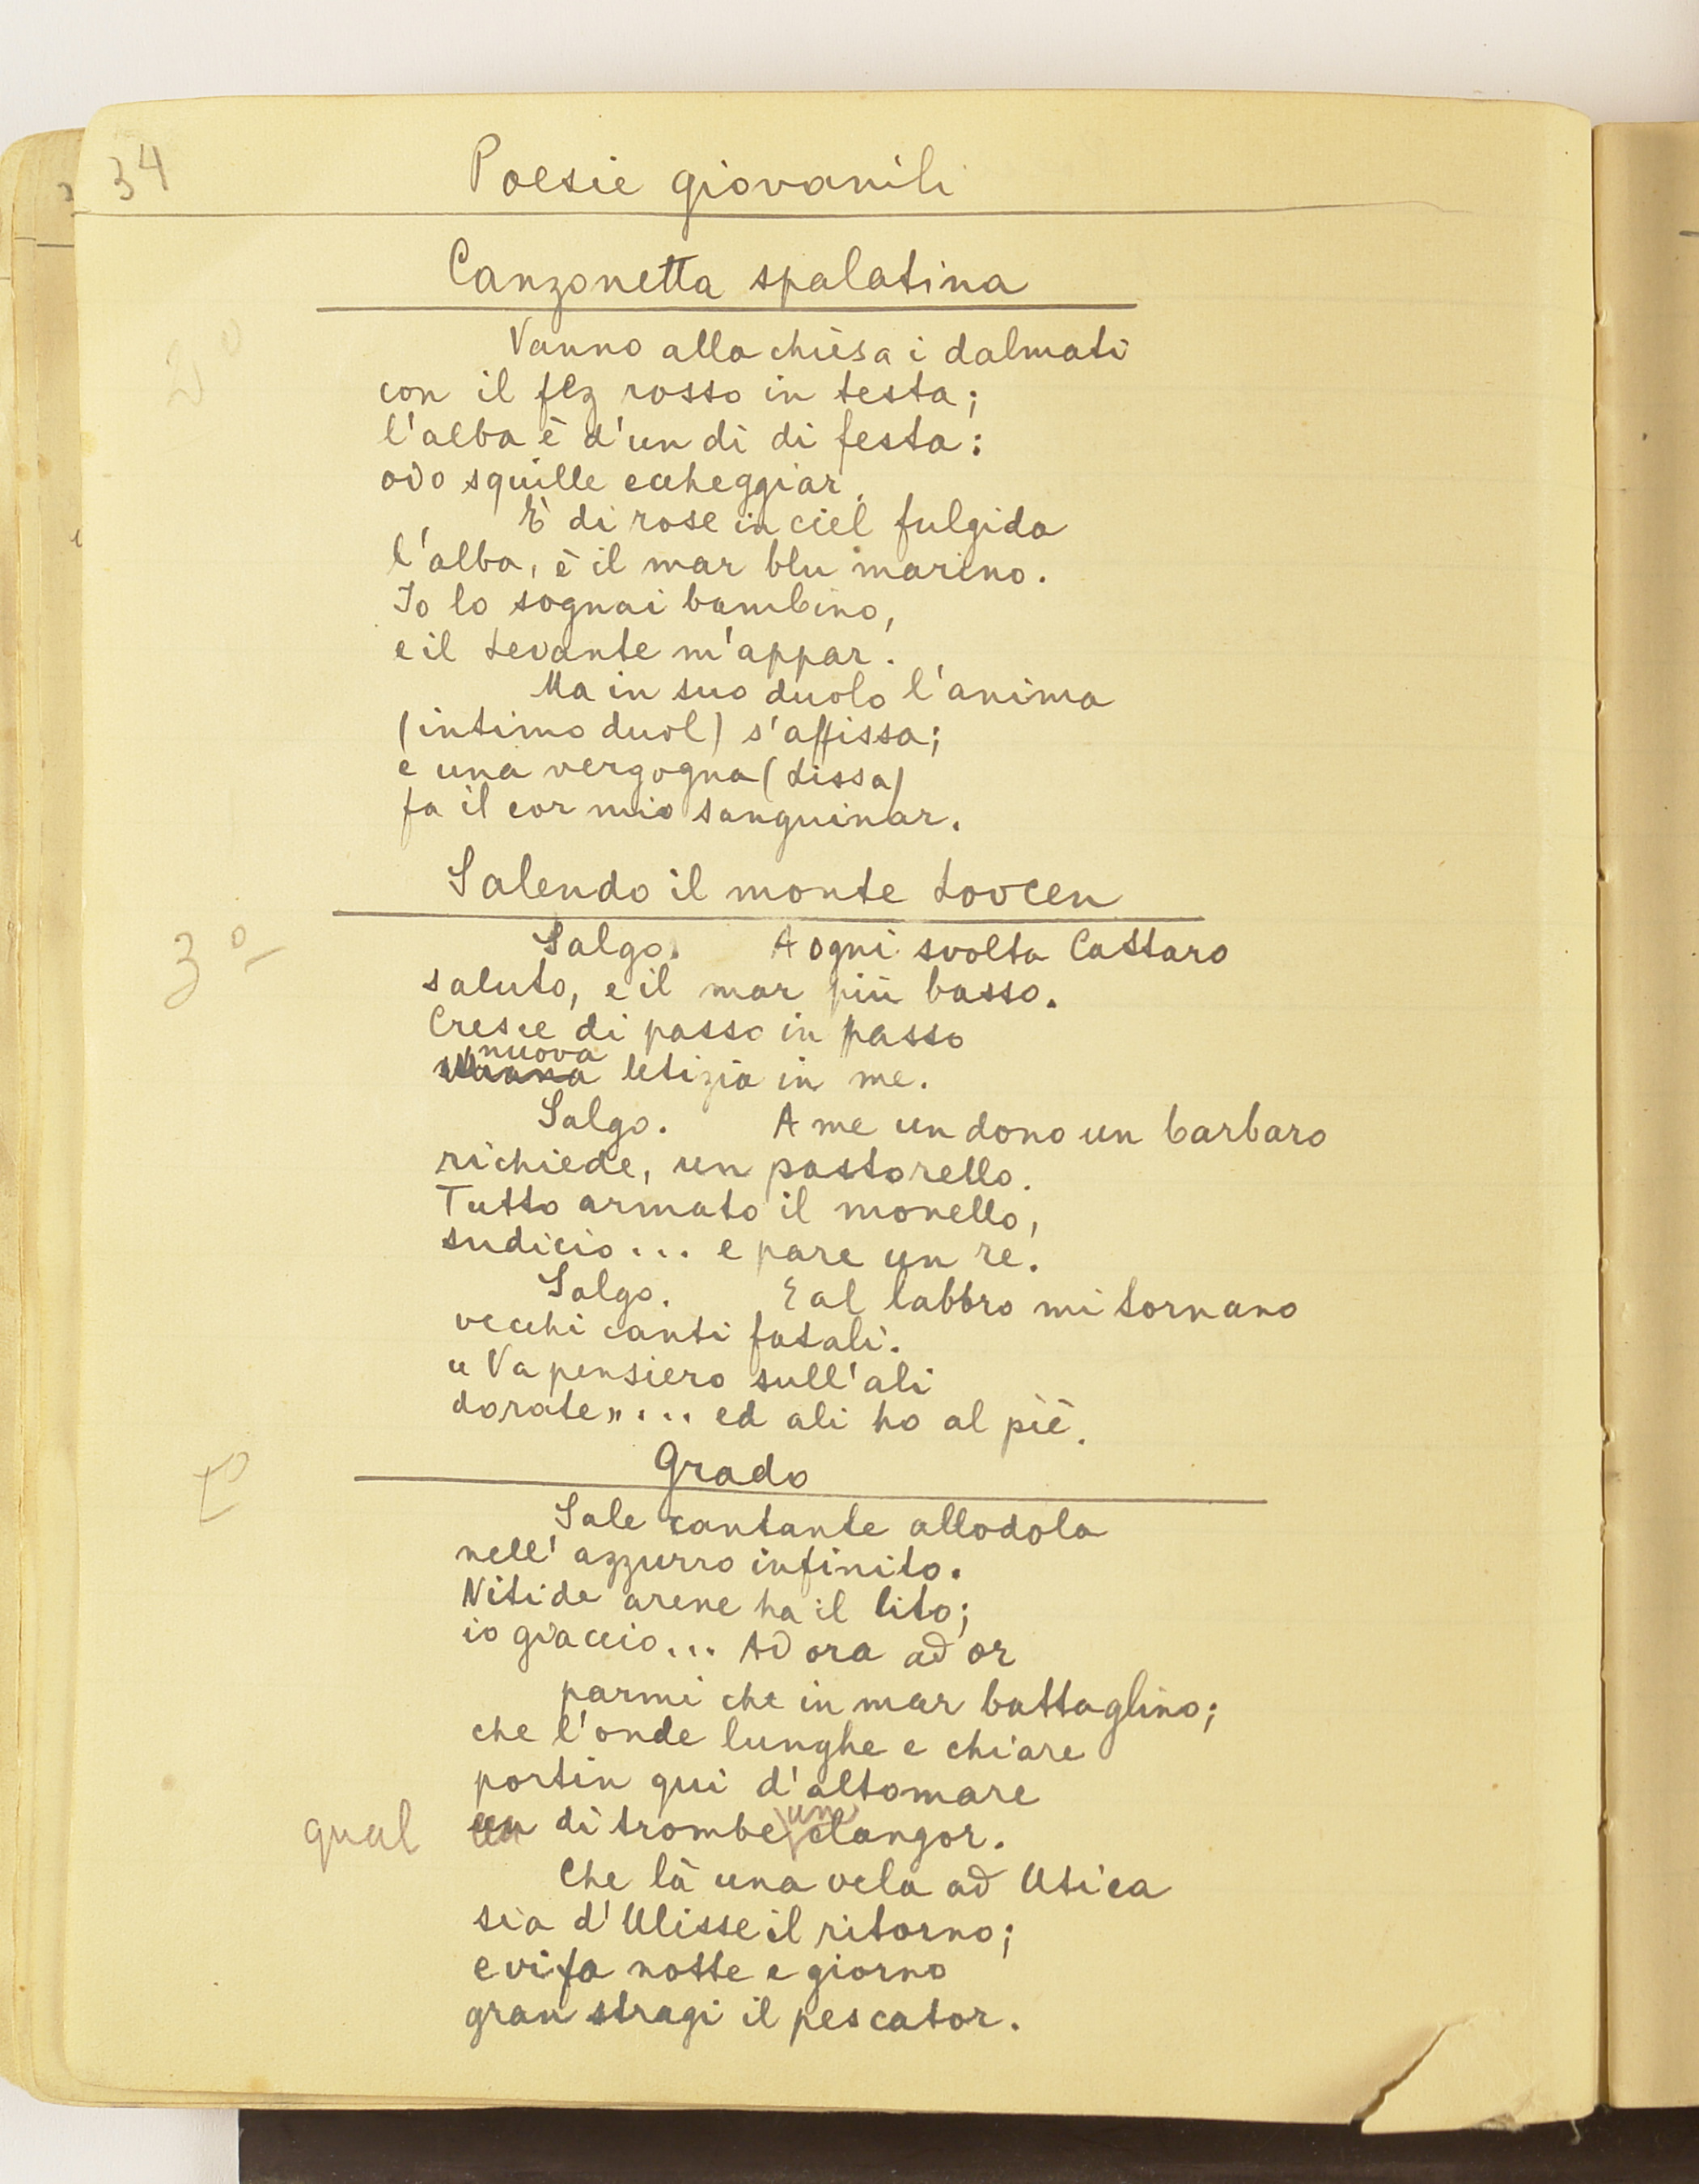 34
Poesie giovanili
Canzonetta spalatina
2º
Vanno alla chiesa i dalmati
con il fez rosso in testa;
l'alba è d'un dì di festa:
odo squille echeggiar.
È di rose in ciel fulgida
l'alba, è il mar blu marino.
Io lo sognai bambino,
e il Levante m'appar.
Ma in suo duolo l'anima
(intimo duol) s'affissa;
e una vergogna (Lissa)
fa il cor mio sanguinar.
Salendo il monte Lovcen
3º
Salgo. A ogni svolta Cattaro
saluto, e il mar più basso.
Cresce di passo in passo
nuova
letizia in me.
Salgo. A me un dono un barbaro
richiede, un pastorello.
Tutto armato il monello,
sudicio... e pare un re.
Salgo. E al labbro mi tornano
vecchi canti fatali.
"Va pensiero sull'ali
dorate"... ed ali ho al piè.
Grado
Sale cantante allodola
nell'azzurro infinito.
Nitide arene ha il lito;
io giaccio... Ad ora ad or
parmi che in mar battaglino;
che l'onde lunghe e chiare
portin qui d'altomare
qual un di trombe un clangor.
Che là una vela ad Utica
sia d'Ulisse il ritorno;
e vi fa notte e giorno
gran stragi il pescator.